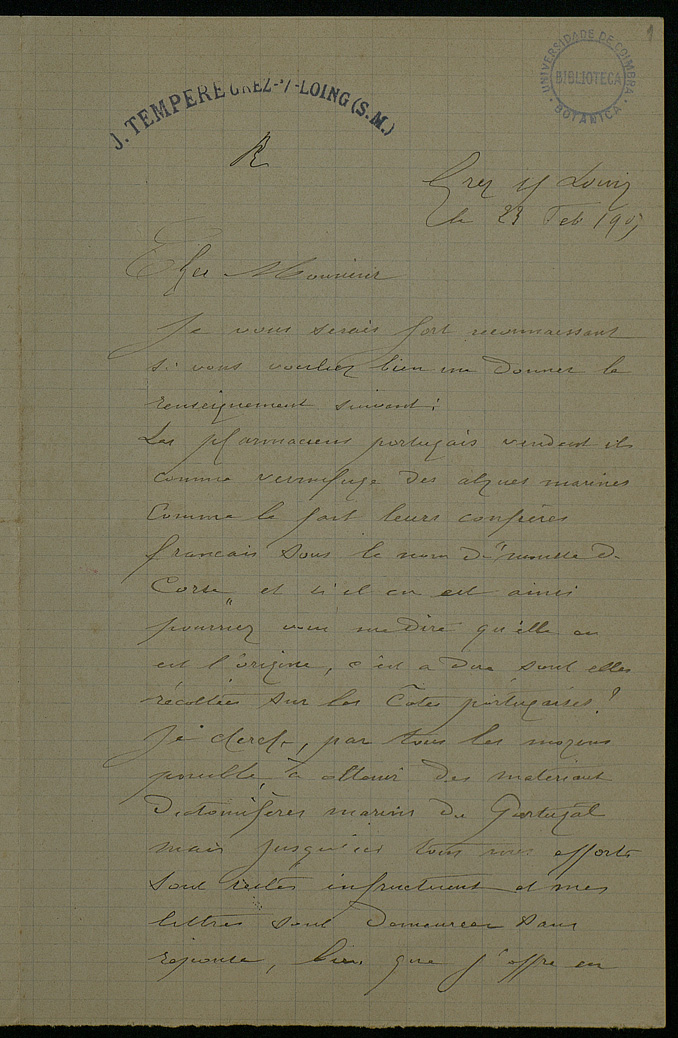 1
UNIVERSIDADE DE COIMBRA
BIBLIOTECA
BOTANICA
J. TEMPERE GREZ-S/-LOING (S.M.)
R
Grez s/ Loing
le 23 Feb 190
Cher Monsieur
Je vous serais fort reconnaissant
si vous vouliez bien me donner le
renseignement suivant :
Les pharmaciens portugais vendent ils
comme vermifuge des algues marines
comme le font leurs confrères
francais sous le nom de "mousse de
Corse" et s'il en est ainsi
pourriez vous me dire qu'elle en
est l'origine, c'est a dire sont elles
récoltées sur les Côtes portugaises ?
Je cherche, par tous les moyens
possible, à obtenir des materiaux
Diatomifères marins du Portugal
mais jusqu'ici tous mes efforts
sont restés infructueux et mes
lettres sont demeurees sans
réponse, bien que j'offre en